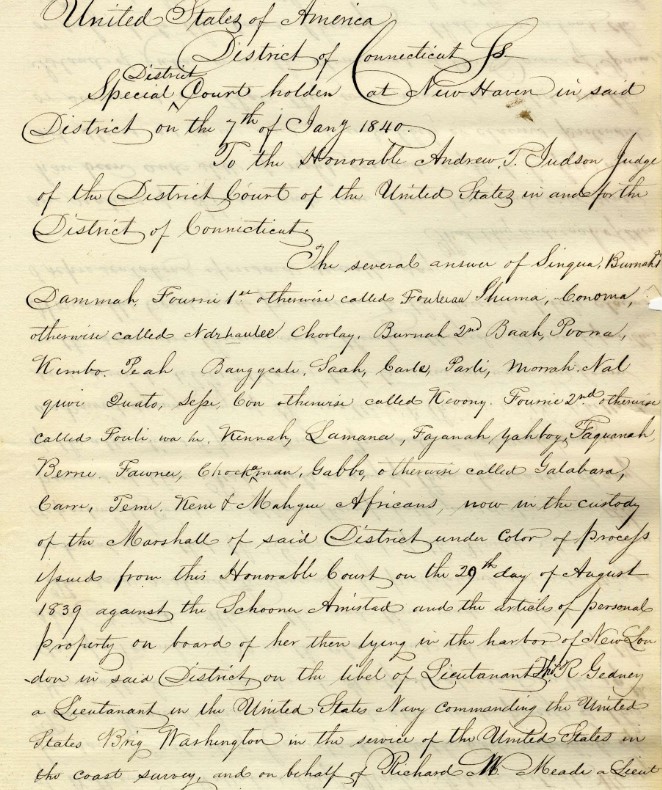 United States of America
District of Connecticut Ss
District
Special ^ Court holden at New Haven in said
District on the 7th of Jany 1840.
To the Honorable Andrew T. Judson Judge
of the District Court of the United States in and for the
District of Connecticut;
The several answer of Singua, Burnah 1st
Dammah, Fourrie 1st otherwise called Shuma, Conoma,
otherwise called Chooley, Burnah 2nd Baah, Poona,
Kimbo. Peah Bangyeate, Saah, Carle, Parli, Morrah, Nat
quoi Quato, Sesse, Con otherwise called Kevony. Fourrie 2nd otherwise
called Kennah, Lamana, Fajanah, Yahboy, Faquanah
Berrie. Fawnee, Chockaman, Gabbo, otherwise called Galabara,
Carre, Teme. Kene & Mahgue Africans, now in the custody
of the Marshall of said District under color of process
issued from this Honorable Court on the 29th day of August
1839 against the Schooner Amistad and the articles of personal
property on board of her then lying in the harbor of New Lon
-don in said District, on the libel of Lieutanant R Gedney
a Lieutanant in the United States Navy commanding the United
States Brig Washington in the service of the United States in
the coast survey, and on behalf of Richard W Meade a Lieut